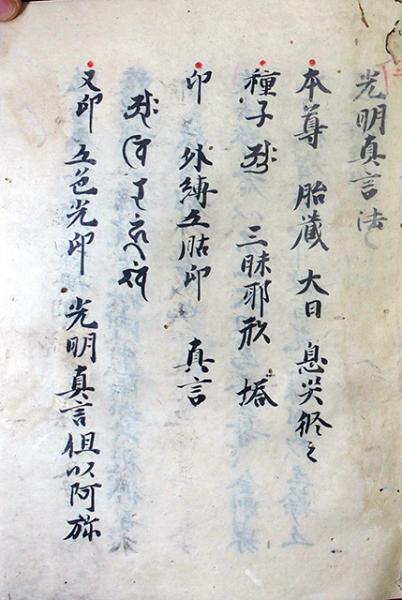 光明真言法
本尊 胎藏 大日 息災修之
種子 三昧耶形 塔
印 外縛五胋印 真言
又印 五色光印 光明真言但以阿弥